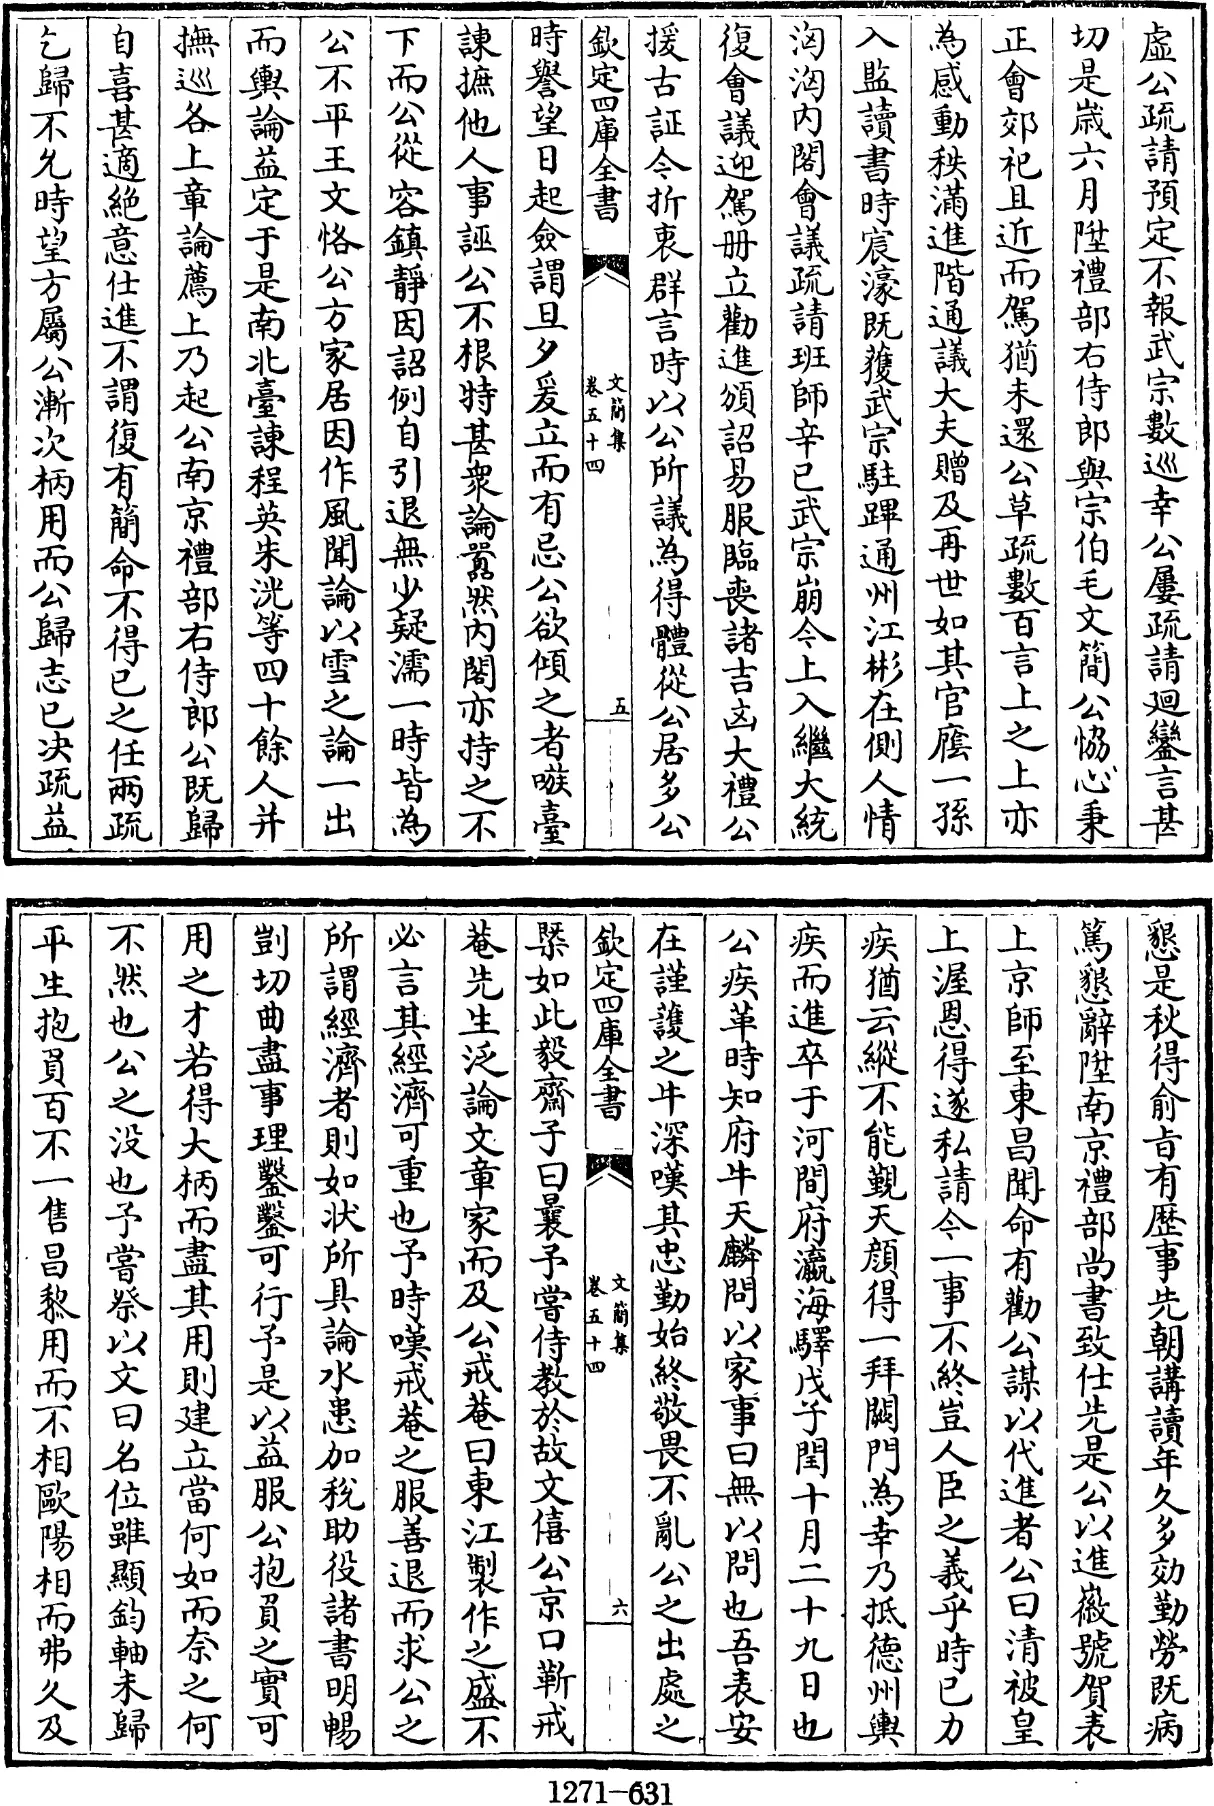 虛公疏請預定不報武宗數巡幸公屢疏請廻鑾言甚
切是歳六月陞禮部右侍郎與宗伯毛文簡公恊心秉
正會郊祀且近而駕猶未還公草疏數百言上之上亦
為感動秩滿進階通議大夫贈及再世如其官廕一孫
入監讀書時宸濠既獲武宗駐蹕通州江彬在側人情
洶洶内閣會議疏請班師辛已武宗崩今上入繼大統
復會議迎駕册立勸進頒詔易服臨喪諸吉凶大禮公
援古証今折衷群言時以公所議為得體從公居多公
欽定四庫全書
文簡集
卷五十四
五
時譽望日起僉謂旦夕爰立而有忌公欲傾之者嗾臺
諫摭他人事誣公不根特甚衆論嚣然内閣亦持之不
下而公從容鎮靜因詔例自引退無少疑濡一時皆為
公不平王文恪公方家居因作風聞論以雪之論一出
而輿論益定于是南北臺諫程英朱洸等四十餘人并
撫巡各上章論薦上乃起公南京禮部右侍郎公既歸
自喜甚適絶意仕進不謂復有簡命不得已之任兩疏
乞歸不允時望方屬公漸次柄用而公歸志已决疏益
懇是秋得俞㫖有歴事先朝講讀年久多効勤勞既病
篤懇辭陞南京禮部尚書致仕先是公以進徽號賀表
上京師至東昌聞命有勸公謀以代進者公曰清被皇
上渥恩得遂私請今一事不終豈人臣之義乎時已力
疾猶云縱不能覲天顔得一拜闕門為幸乃抵德州輿
疾而進卒于河間府瀛海驛戊子閏十月二十九日也
公疾革時知府牛天麟問以家事曰無以問也吾表安
在謹護之牛深嘆其忠勤始終敬畏不亂公之出處之
欽定四庫全書
文簡集
卷五十四
六
槩如此毅齋子曰曩予嘗侍教於故文僖公京口靳戒
菴先生泛論文章家而及公戒菴曰東江製作之盛不
必言其經濟可重也予時嘆戒菴之服善退而求公之
所謂經濟者則如狀所具論水患加稅助役諸書明暢
剴切曲盡事理鑿鑿可行予是以益服公抱負之實可
用之才若得大柄而盡其用則建立當何如而奈之何
不然也公之没也予嘗祭以文曰名位雖顯鈞軸未歸
平生抱負百不一售昌黎用而不相歐陽相而弗久及
1271-631